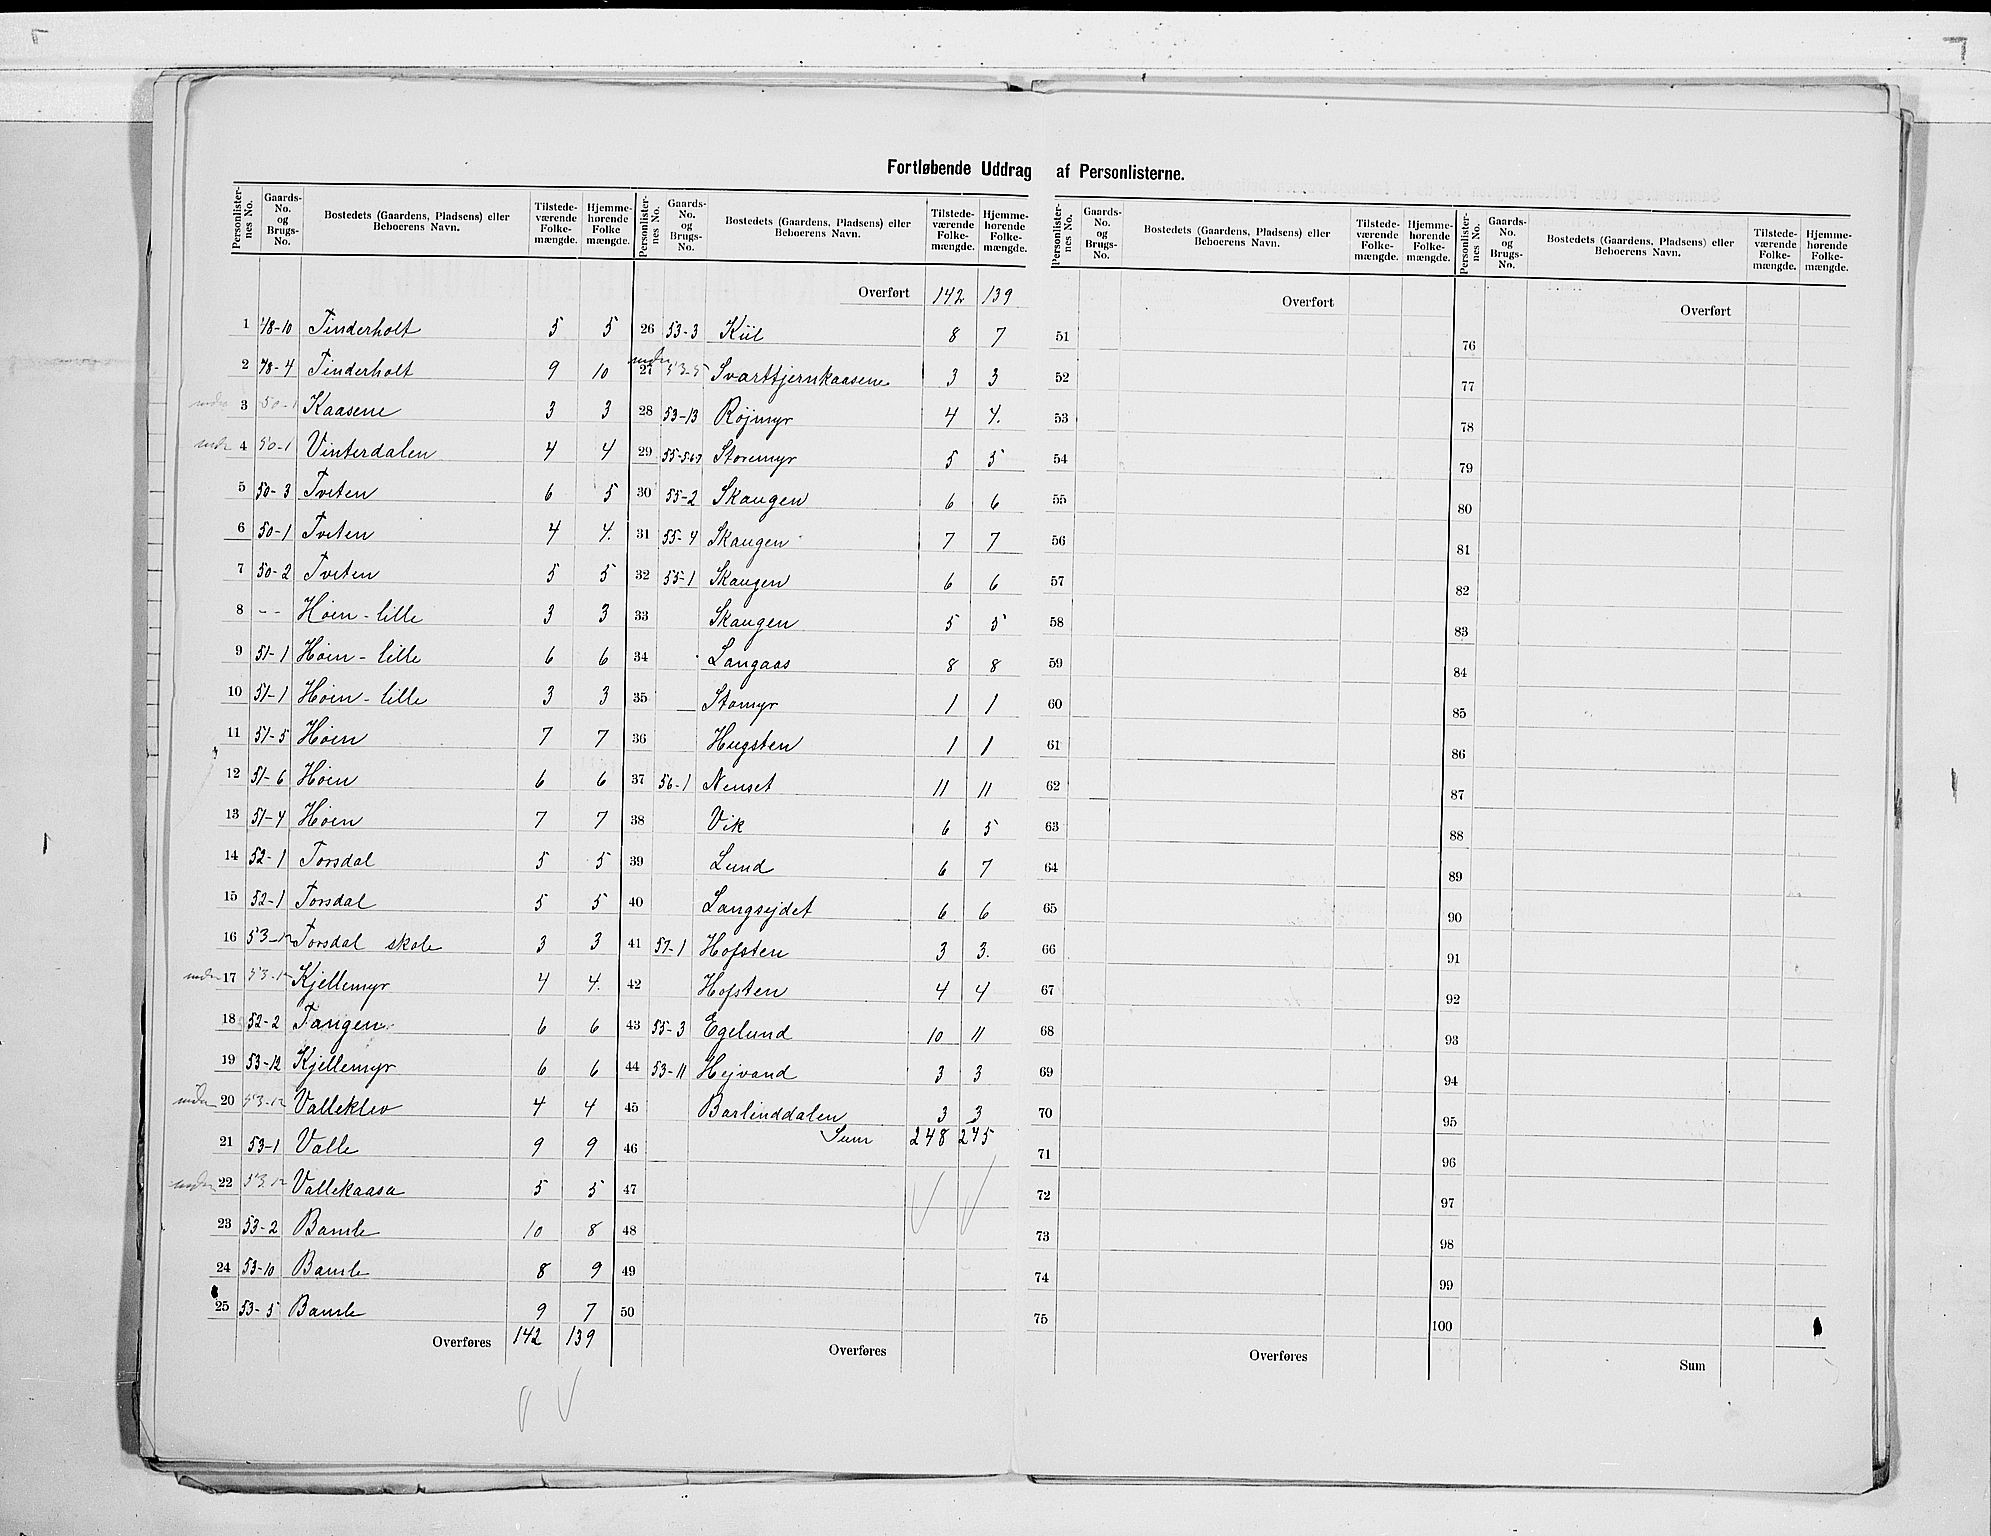 Fortløbende Uddrag af Personlisterne.
Personlister-nes No. Gaards-No. og Brugs-No. Bostedets (Gaardens, Pladsens) eller Beboerens Navn. Tilstede-værende Folke-mængde. Hjemme-hørende Folke mængde.
1 48-10 Tinderholt 5 5
2 48-4 Tinderholt 9 10
3 50-1 Kaasene 3 3
4 50-1 Vinterdalen 4 4
5 50-3 Tveten 6 5
6 50-1 Tveten 4 4.
7 50-2 Tveten 5 5
8 - - Høen - lille 3 3
9 51-1 Høen - lille 6 6
10 51-1 Høen - lille 3 3
11 51-5 Høen 7 7
12 51-6 Høen 6 6
13 51-4 Høen 7 7
14 52-1 Torsdal 5 5
15 52-1 Torsdal 5 5
16 53-12 Torsdal skole 3 3
under 17 53-12 Kjellemyr 4 4.
18 52-2 Tangen 6 6
19 53-12 Kjellemyr 6 6
under 20 53-12 Valleklev 4 4
21 53-1 Valle 9 9
under 22 53-12 Vallekaasa 5 5
23 53-2 Bamle 10 8
24 53-10 Bamle 8 9
25 53-5 Bamle 9 7
Overføres 142 139
Personlister-nes No. Gaards-No. og Brugs-No. Bostedets (Gaardens, Pladsens) eller Beboerens Navn. Tilstede-værende Folke-mængde. Hjemme-hørende Folke-mængde.
Overført 142 139
26 53-3 Kiil 8 7
under 27 53-5 Svarttjernkaasene 3 3
28 53-13 Røjmyr 4 4.
29 Storemyr 5 5
30 55-2 Skaugen 6 6
31 55-4 Skaugen 7 7
32 55-1 Skaugen 6 6
33 Skaugen 5 5
34 Langaas 8 8
35 Stomyr 1 1
36 Hugsten 1 1
37 56-1 Nenset 11 11
38 Vik 6 5
39 Lund 6 7
40 Langsejdet 6 6
41 57-1 Hofsten 3 3.
42 Hofsten 4 4
43 55-3 Egelund 10 11
44 53-11 Hejvand 3 3
45 Barlinddalen 3 3
46 Sum 248 245
47
48
49
50
Overføres
Personlister-nes No. Gaards-No. og Brugs-No. Bostedets (Gaardens, Pladsens) eller Beboerens Navn. Tilstede-værende Folke-mængde. Hjemme-hørende Folke-mængde.
Overført
51
52
53
54
55
56
57
58
59
60
61
62
63
64
65
66
67
68
69
70
71
72
73
74
75
Overføres
Personlister-nes No. Gaards-No. og Brugs-No. Bostedets (Gaardens, Pladsens) eller Beboerens Navn. Tilstede-værende Folke-mængde. Hjemme-hørende Folke-mængde.
Overført
76
77
78
79
80
81
82
83
84
85
86
87
88
89
90
91
92
93
94
95
96
97
98
99
100
Sum